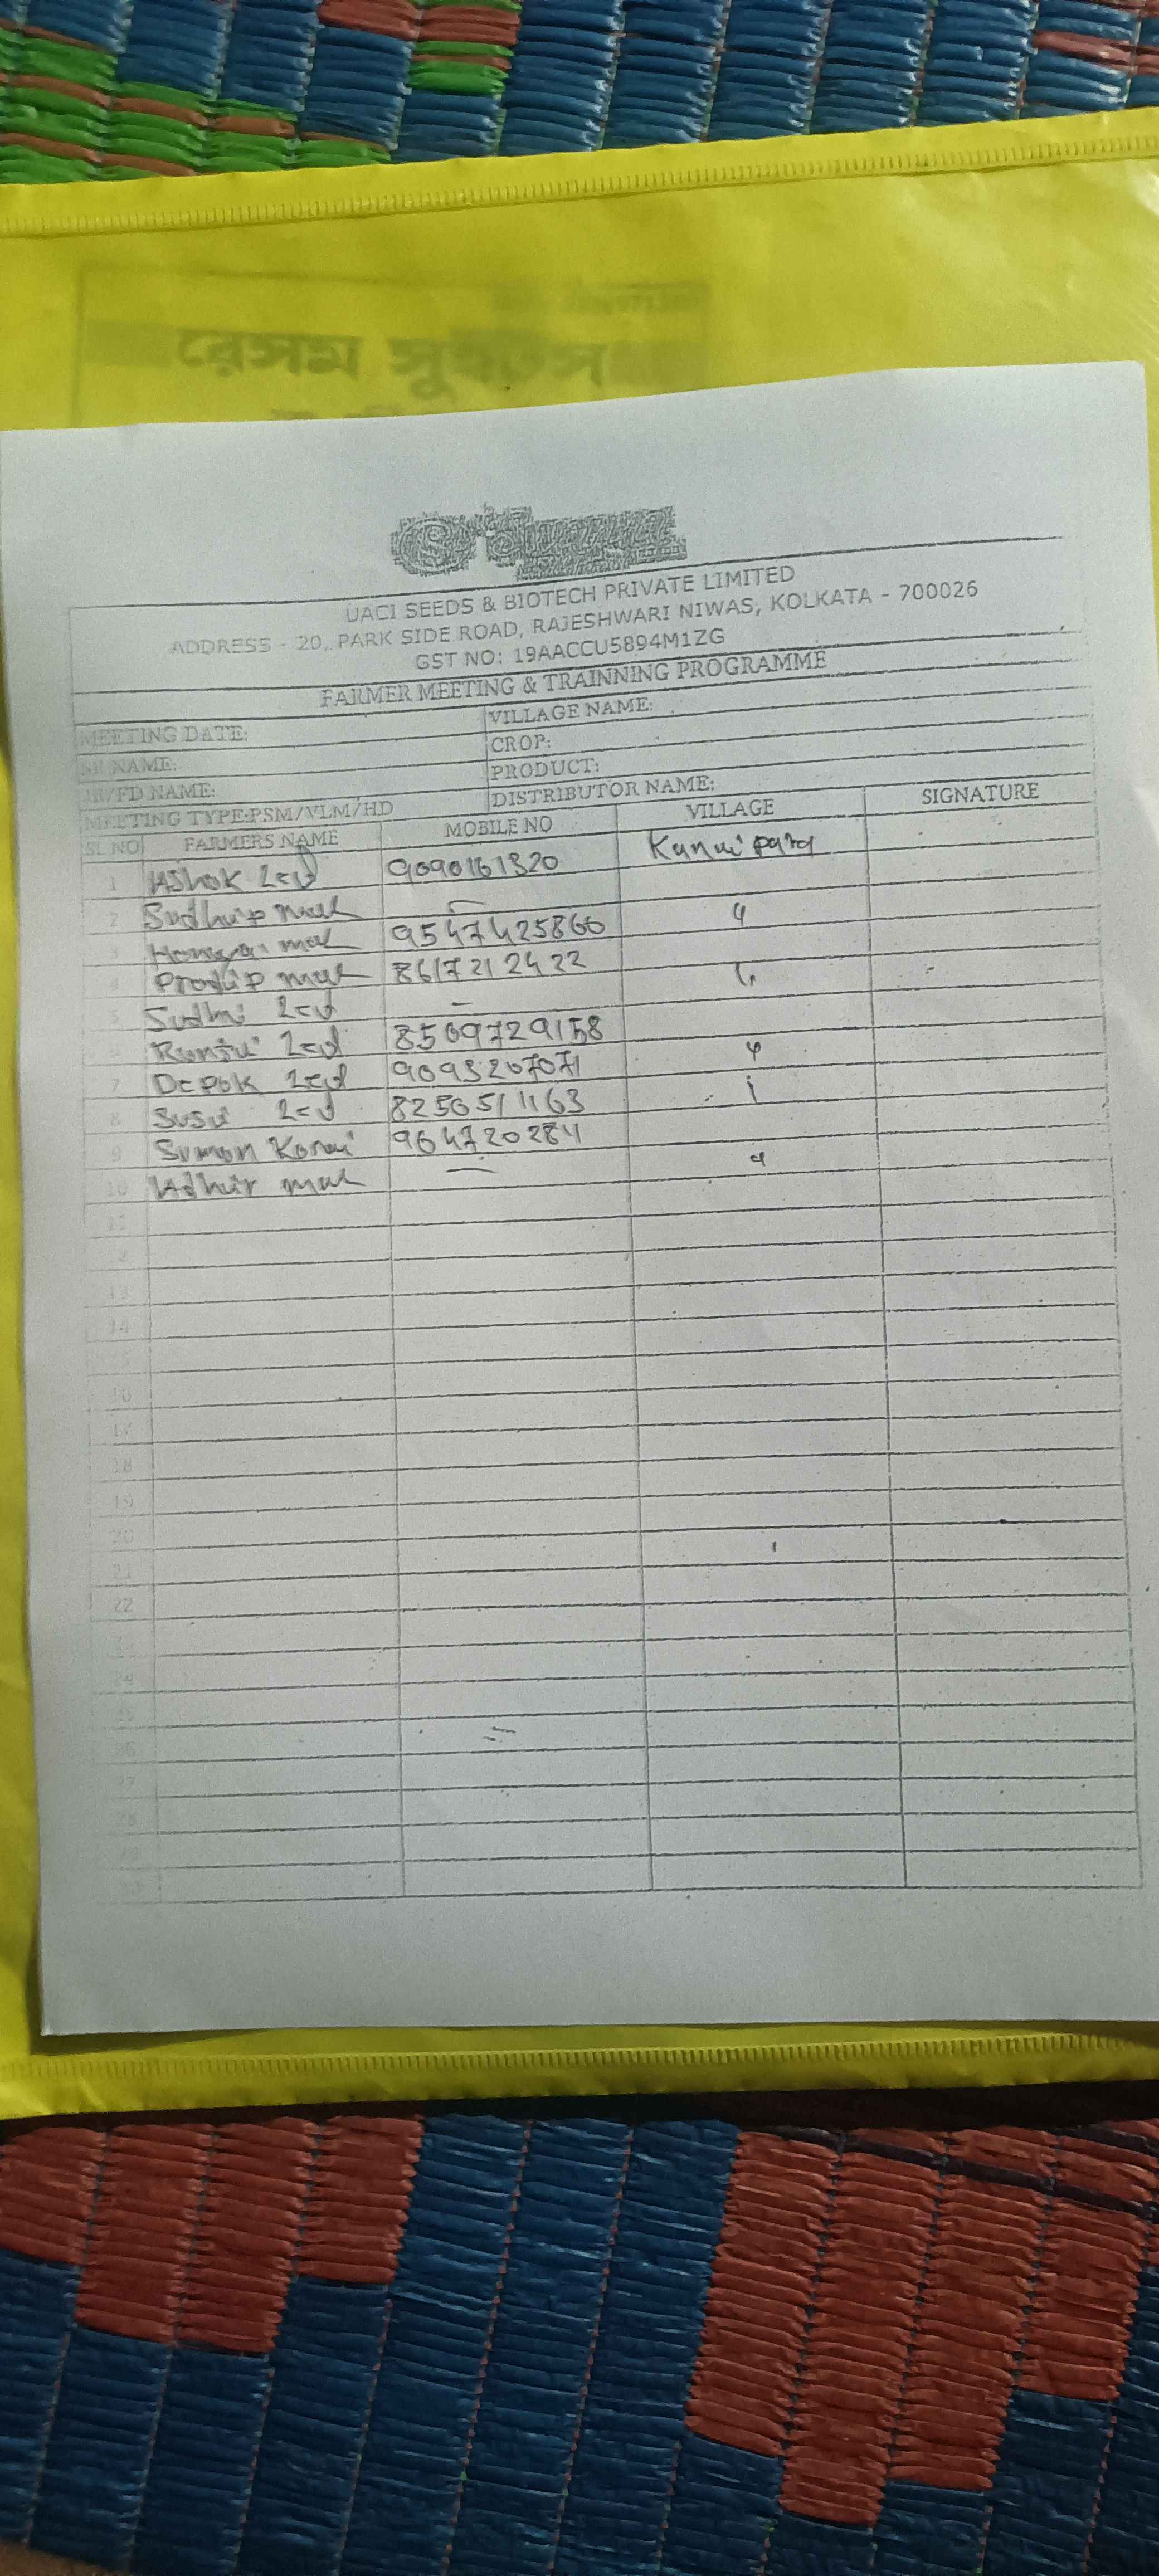 রেসম সুইটস
UACI SEEDS & BIOTECH PRIVATE LIMITED
ADDRESS - 20, PARK SIDE ROAD, RAJESHWARI NIWAS, KOLKATA - 700026
GST NO: 19AACCU5894M1ZG
FARMER MEETING & TRAINNING PROGRAMME
MEETING DATE: VILLAGE NAME:
SR NAME: CROP:
JR/FD NAME: PRODUCT:
MEETING TYPE:PSM/VLM/HD DISTRIBUTOR NAME:
SL NO FARMERS NAME MOBILE NO VILLAGE SIGNATURE
1 Ashok 9090161320
2 Sudhir mal
3 mal 9547425860
4 Prodip mal 8617212422
5 Sudhi
6 8509729158
7 Depok 9093207071
8 Susil 8250511163
9 Sumon Konai 964720284
10 Adhir mal
11
12
13
14
15
16
17
18
19
20
21
22
23
24
25
26
27
28
29
30